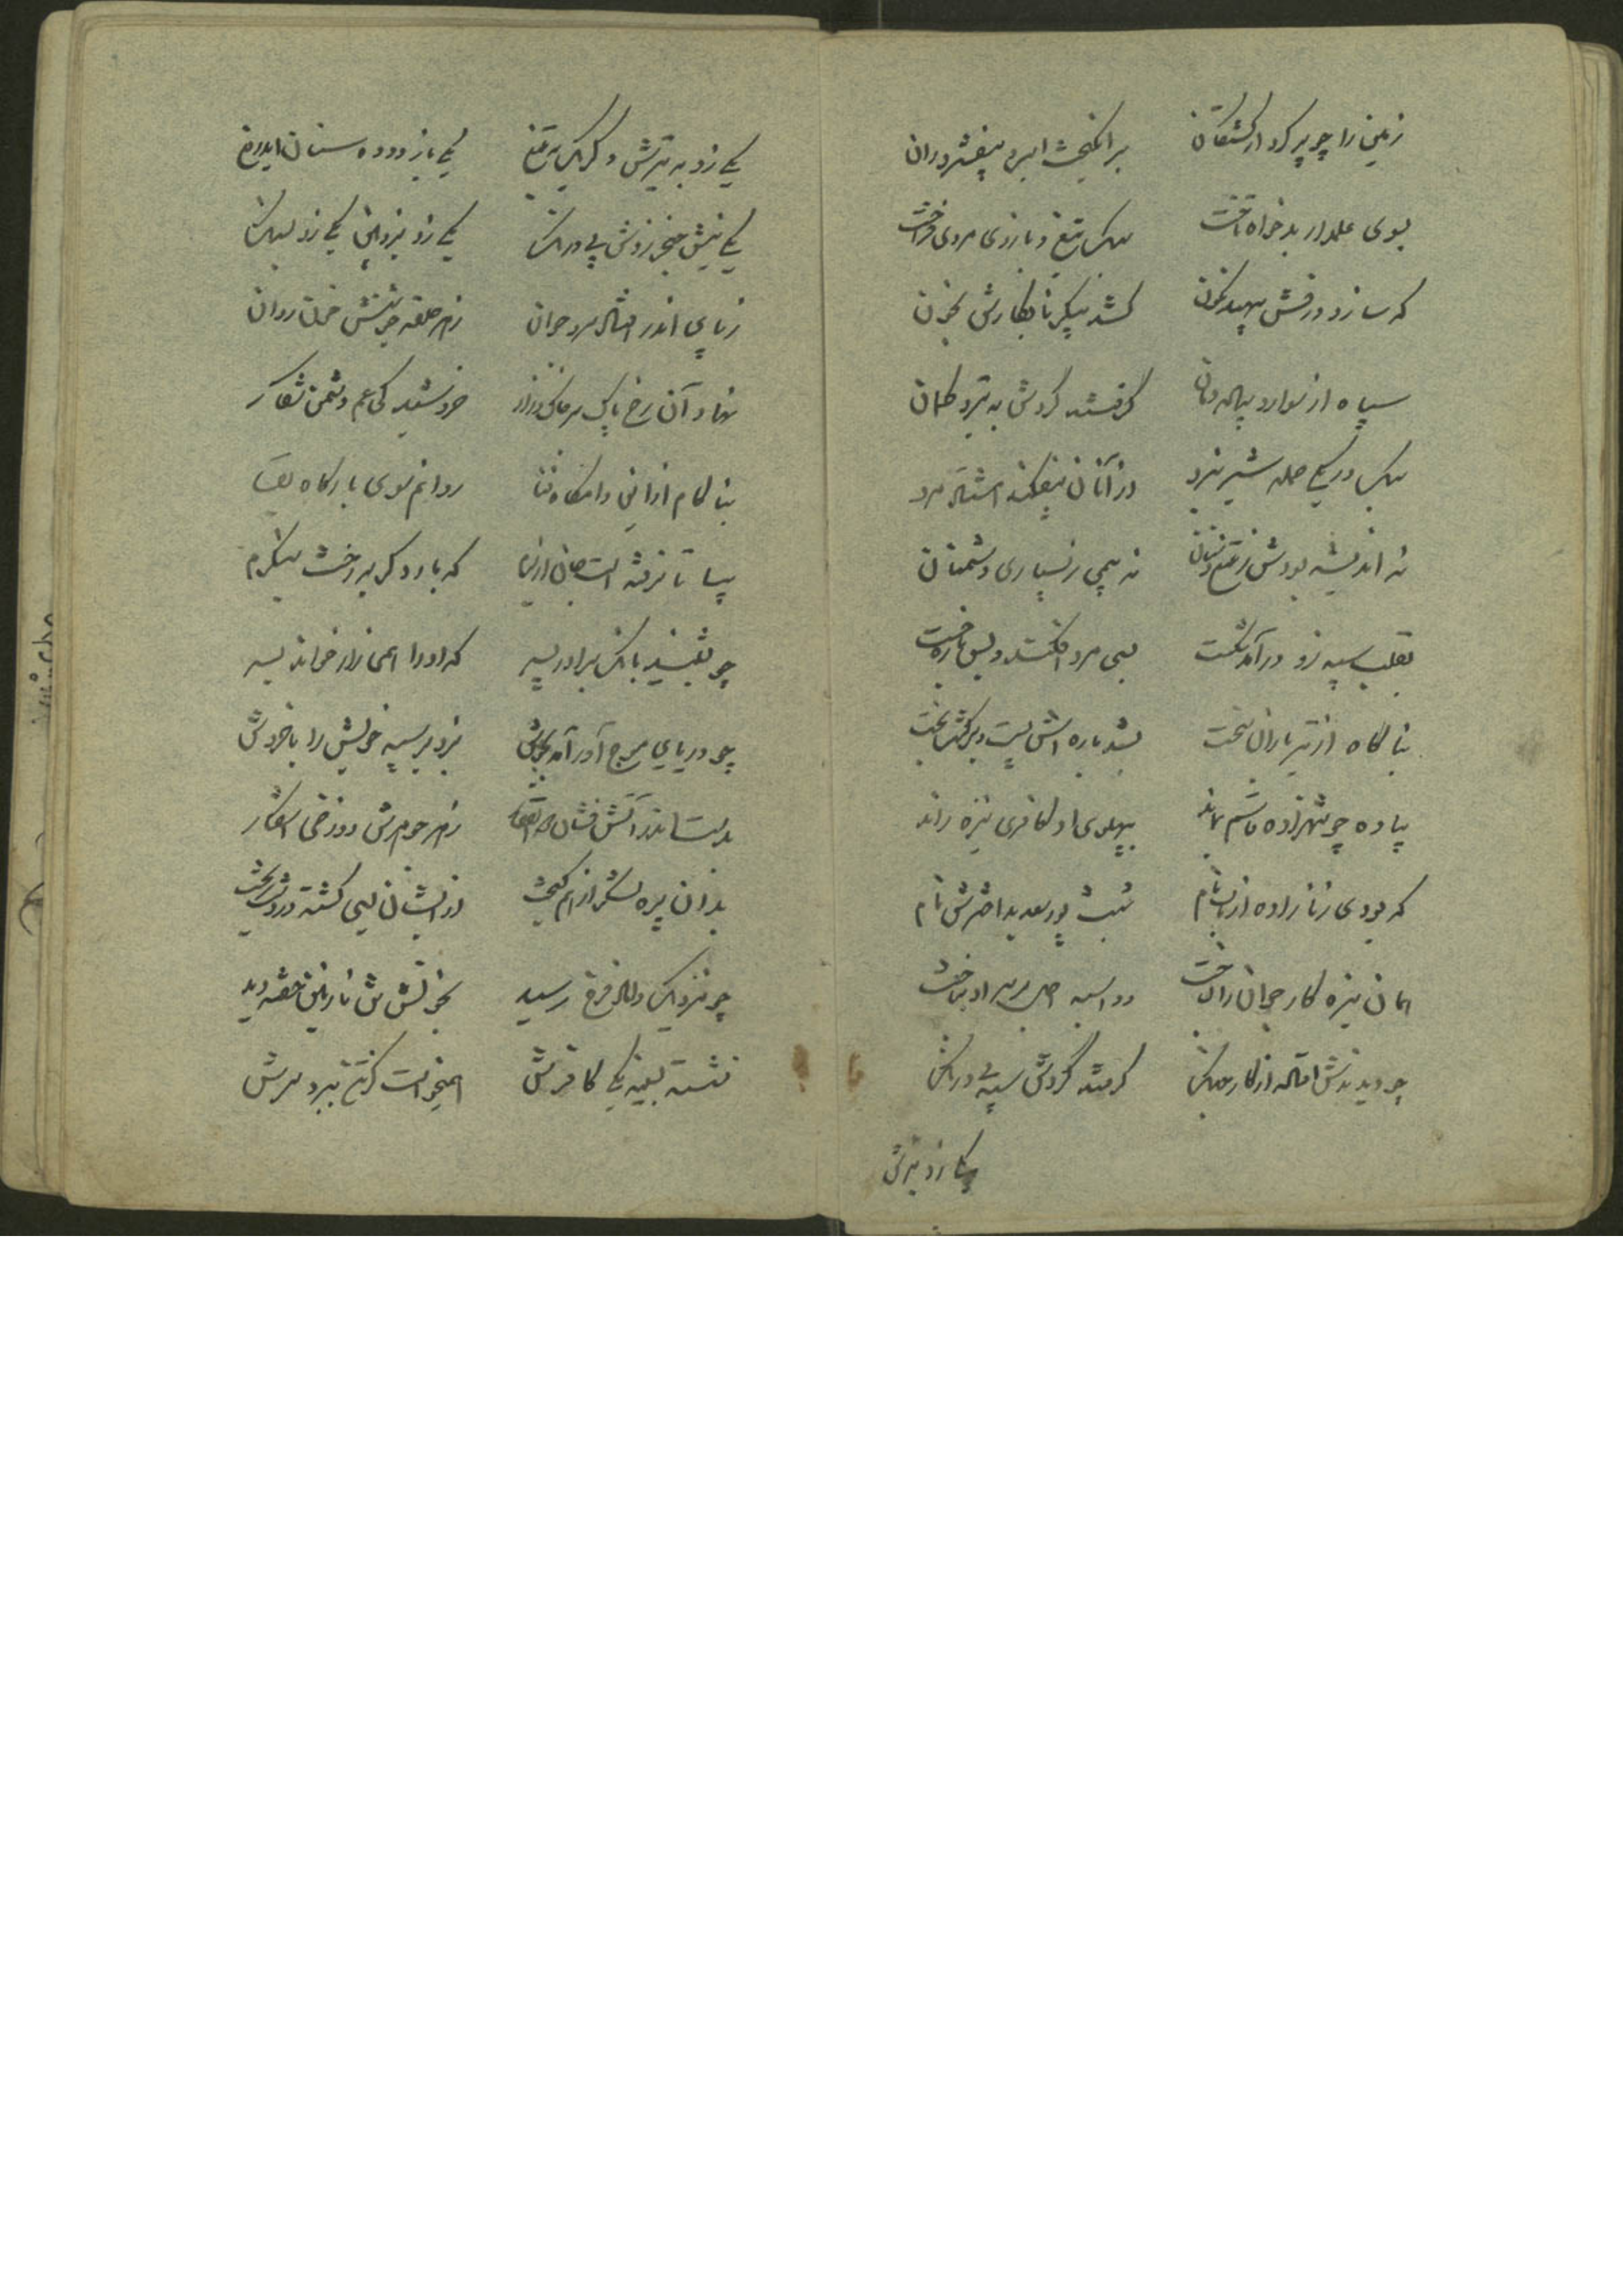 زمین را چو پر کرد از کشتگان برانگیخت اسب و بیفشرد ران
بسوی علمدار بدخواه تاخت بیک تیغ و بازوی مردی فراخت
که سازد درفش سپهبد نگون کشد پیکر نابکارش بخون
سپاه از سوار و پیاله دمان گرفتند گردش به تیر و کمان
بیک در یکی حمله شیر نبرد از آنان بیفکند هشتاد مرد
نه اندیشه بودش ز تیغ و سنان نه بیمی ز بسیاری دشمنان
بقلب سپه زد درآمد شکست بسی مرد افکند و بس باره خست
بناگاه از تیر باران سخت بشد باره اش پست و برگشت بخت
پیاده چو شهزاده قاسم بماند بپهلوی او کافری نیزه راند
که بودی زنا زاده از باب و مام شبث پور سعد بداخترش نام
همان نیزه کار جوان را بساخت دو اسبه اجل بر سر او بتاخت
چو دیدندش افتاده از کار و جنگ گرفتند گردش سپه بی درنگ
یکی زد به تیرش
یکی زد به تیرش دگر یک به تیغ یکی باز دوده سنان بیدریغ
یکی نیش خنجر زدش بی درنگ یکی زد بزوبین یکی زد بسنگ
ز پای اندر افتاد مرد جوان ز هر حلقه جوشنش خون روان
نهاد آن رخ پاک بر خاک زار خروشید کی عم دشمن شکار
بناکام ازین دامگاه فنا روانم سوی بارگاه بقا
بیا تا نرفته است جان از تنم که بار دگر بر رخت بنگرم
چو بشنید بانگ برادر پسر که او را همی زار خواند بسر
چو دریای موج آور آمد بجوش بزد بر سپه خویش را با خروش
بدست اندر آتش فشان ذوالفقار ز هر جوهرش دوزخی آشکار
بدان پره لشکر از هم گسیخت از ایشان بسی کشته در دشت ریخت
چو نزدیک داماد فرخ رسید بخون تنش نازنین خفته دید
نشسته بسینه یکی کافرش همیخواست کز تن ببرد سرش